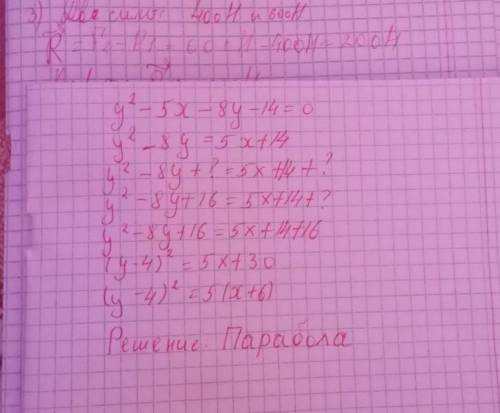 3) Две силы: 400Н и 600Н
R = F₂ - F₁ = 600Н - 400Н = 200Н
y² - 5x - 8y - 14 = 0
y² - 8y = 5x + 14
y² - 8y + ? = 5x + 14 + ?
y² - 8y + 16 = 5x + 14 + ?
y² - 8y + 16 = 5x + 14 + 16
(y - 4)² = 5x + 30
(y - 4)² = 5(x + 6)
Решение: Парабола